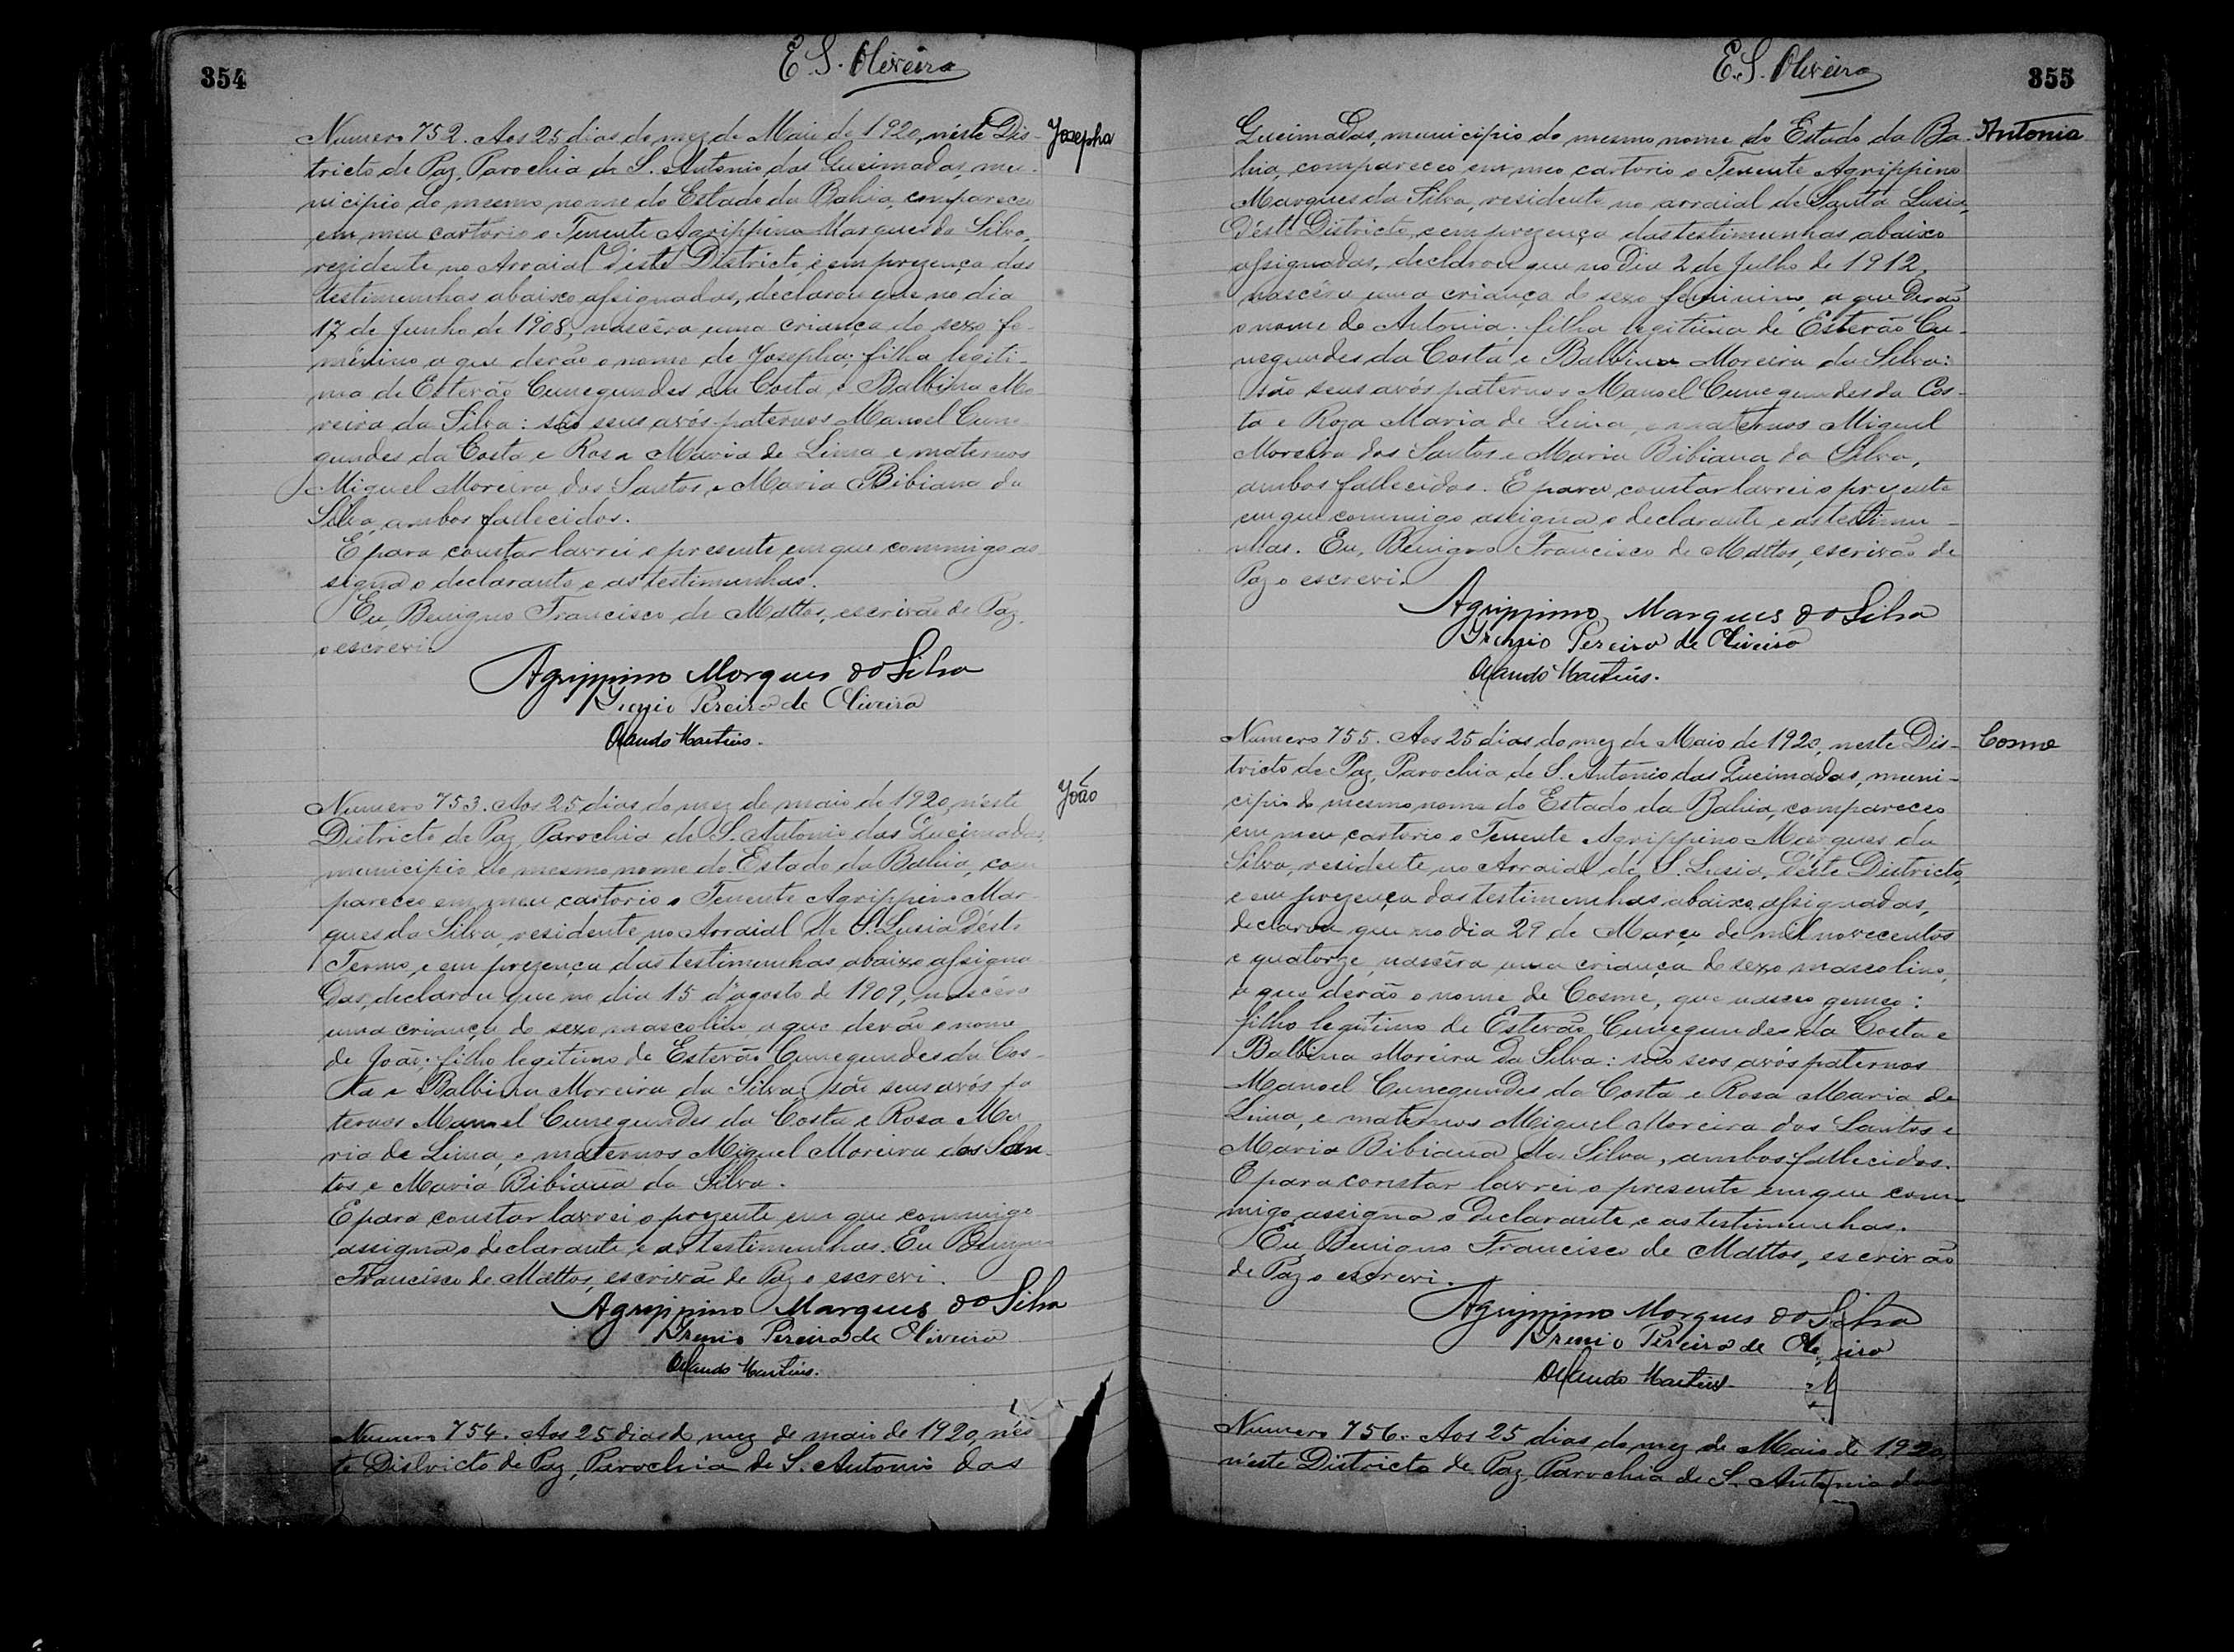 354
E. S. Oliveira
Numero 752. Aos 25 dias do mez de Maio de 1920, néste Dis-
Josepha
tricto de Paz, Parochia de S. Antonio das Queimadas, mu-
nicipio do mesmo nome do Estado da Bahia, compareceo
em meu cartorio o Tenente Agrippino Marques da Silva,
rezidente no Arraial d'éste Districto e em prezença das
testimunhas abaixo assignadas, declarou que no dia
17 de Junho de 1908, nascêra uma criança do sexo fe-
menino a que derão o nome de Josepha; filha legiti-
ma de Estevão Cunegundes da Costa e Balbina Mo-
reira da Silva: são seus avós paternos Manoel Cune-
gundes da Costa e Rosa Maria de Lima e maternos
Miguel Moreira dos Santos e Maria Bibiana da
Silva, ambos fallecidos.
E para constar lavrei o presente em que commigo as-
signa o declarante e as testimunhas.
Eu, Benigno Francisco de Mattos, escrivão de Paz,
o escrevi.
Agrippino Marques da Silva
Irenio Pereira de Oliveira
Orlando Martins.
Numero 753. Aos 25 dias do mez de maio de 1920, n'éste
João
Districto de Paz, Parochia de S. Antonio das Queimadas,
municipio do mesmo nome do Estado da Bahia, com
pareceo em meu cartorio o Tenente Agrippino Mar-
ques da Silva, residente no Arraial de S. Lusia d'éste
Termo, e em prezença das testimunhas abaixo assigna-
das, declarou que no dia 15 d'agosto de 1909, nascêra
uma criança do sexo mascolino a que derão o nome
de João; filho legitimo de Estevão Cunegundes da Cos-
ta e Balbina Moreira da Silva; são seus avós pa
ternos Manoel Cunegundes da Costa e Rosa Ma-
ria de Lima, e maternos Miguel Moreira dos San-
tos e Maria Bibiana da Silva.
E para constar lavrei o prezente em que commigo
assigna o declarante e as testimunhas. Eu Benigno
Francisco de Mattos, escrivão de Paz o escrevi.
Agrippino Marques da Silva
Irenio Pereira de Oliveira
Orlando Martins.
Numero 754. Aos 25 dias do mez de maio de 1920, n'és
te Districto de Paz, Parochia de S. Antonio das
E. S. Oliveira
355
Queimadas, municipio do mesmo nome do Estado da Ba-
Antonia
hia, compareceo em meo cartorio o Tenente Agrippino
Marques da Silva, residente no arraial de Santa Lusia,
d'éste Districto, e em prezença das testimunhas abaixo
assignadas, declarou que no dia 2 de Julho de 1912,
nascêra uma criança do sexo feminino, a que derão
o nome de Antonia; filha legitima de Estevão Cu-
negundes da Costa e Balbina Moreira da Silva:
são seus avós paternos Manoel Cunegundes da Cos-
ta e Roza Maria de Lima, e maternos Miguel
Moreira dos Santos e Maria Bibiana da Silva,
ambos fallecidos. E para constar lavrei o prezente
em que commigo assigna o declarante e as testimu-
nhas. Eu, Benigno Francisco de Mattos, escrivão de
Paz o escrevi.
Agrippino Marques da Silva
Irenio Pereira de Oliveira
Orlando Martins.
Numero 755. Aos 25 dias do mez de Maio de 1920, neste Dis-
Cosme
tricto de Paz, Parochia de S. Antonio das Queimadas, muni-
cipio do mesmo nome do Estado da Bahia, compareceo
em meu cartorio o Tenente Agrippino Marques da
Silva, residente no Arraial de S. Lusia, d'éste Districto,
e em prezença das testimunhas abaixo assignadas,
declarou que no dia 29 de Março de mil novecentos
e quatorze, nascêra uma criança do sexo mascolino,
a que derão o nome de Cosme, que nasceo gemeo:
filho legitimo de Estevão Cunegundes da Costa e
Balbina Moreira da Silva: são seos avós paternos
Manoel Cunegundes da Costa e Rosa Maria de
Lima, e maternos Miguel Moreira dos Santos e
Maria Bibiana da Silva, ambos fallecidos.
E para constar lavrei o presente em que com-
migo assigna o declarante e as testimunhas.
Eu Benigno Francisco de Mattos, escrivão
de Paz o escrevi.
Agrippino Marques da Silva
Irenio Pereira de Oliveira
Orlando Martins.
Numero 756. Aos 25 dias do mez de Maio de 1920,
n'éste Districto de Paz, Parochia de S. Antonio das